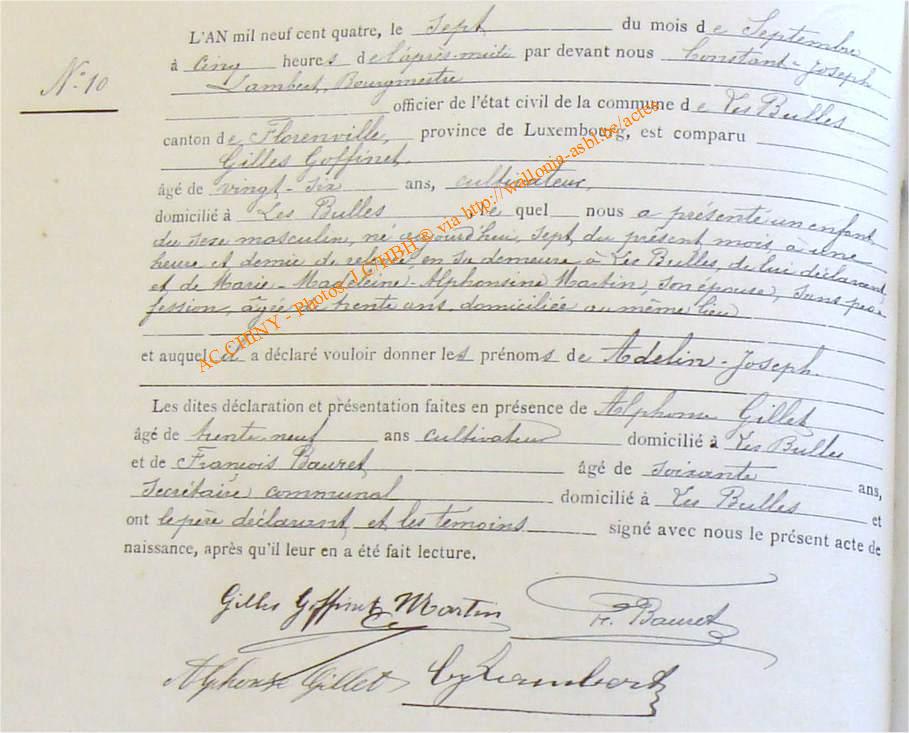 L'AN mil neuf cent quatre, le sept du mois de Septembre
à cinq heures de l'après-midi par devant nous Constant-Joseph
N° 10
Lambert, Bourgmestre
officier de l'état civil de la commune de Les Bulles
canton de Florenville, province de Luxembourg, est comparu
Gilles Goffinet,
âgé de vingt-six ans, cultivateur,
domicilié à Les Bulles lequel nous a présenté un enfant
du sexe masculin, né aujourd'hui, sept du présent mois, à une
heure et demie de relevée en sa demeure à Les Bulles, de lui déclarant
et de Marie-Madeleine-Alphonsine Martin, son épouse, sans pro-
fession, âgée de trente ans, domiciliée au même lieu
et auquel il a déclaré vouloir donner les prénoms de Adelin-Joseph.
Les dites déclaration et présentation faites en présence de Alphonse Gillet
âgé de trente neuf ans cultivateur domicilié à Les Bulles
et de François Bauret âgé de soixante ans,
secrétaire communal domicilié à Les Bulles et
ont le père déclarant et les témoins signé avec nous le présent acte de
naissance, après qu'il leur en a été fait lecture.
Gilles Goffinet Martin F. Bauret
Alphonse Gillet CJ Lambert
AC CHINY - Photos J.C. HBH © via http://wallonia-asbl.be/actes